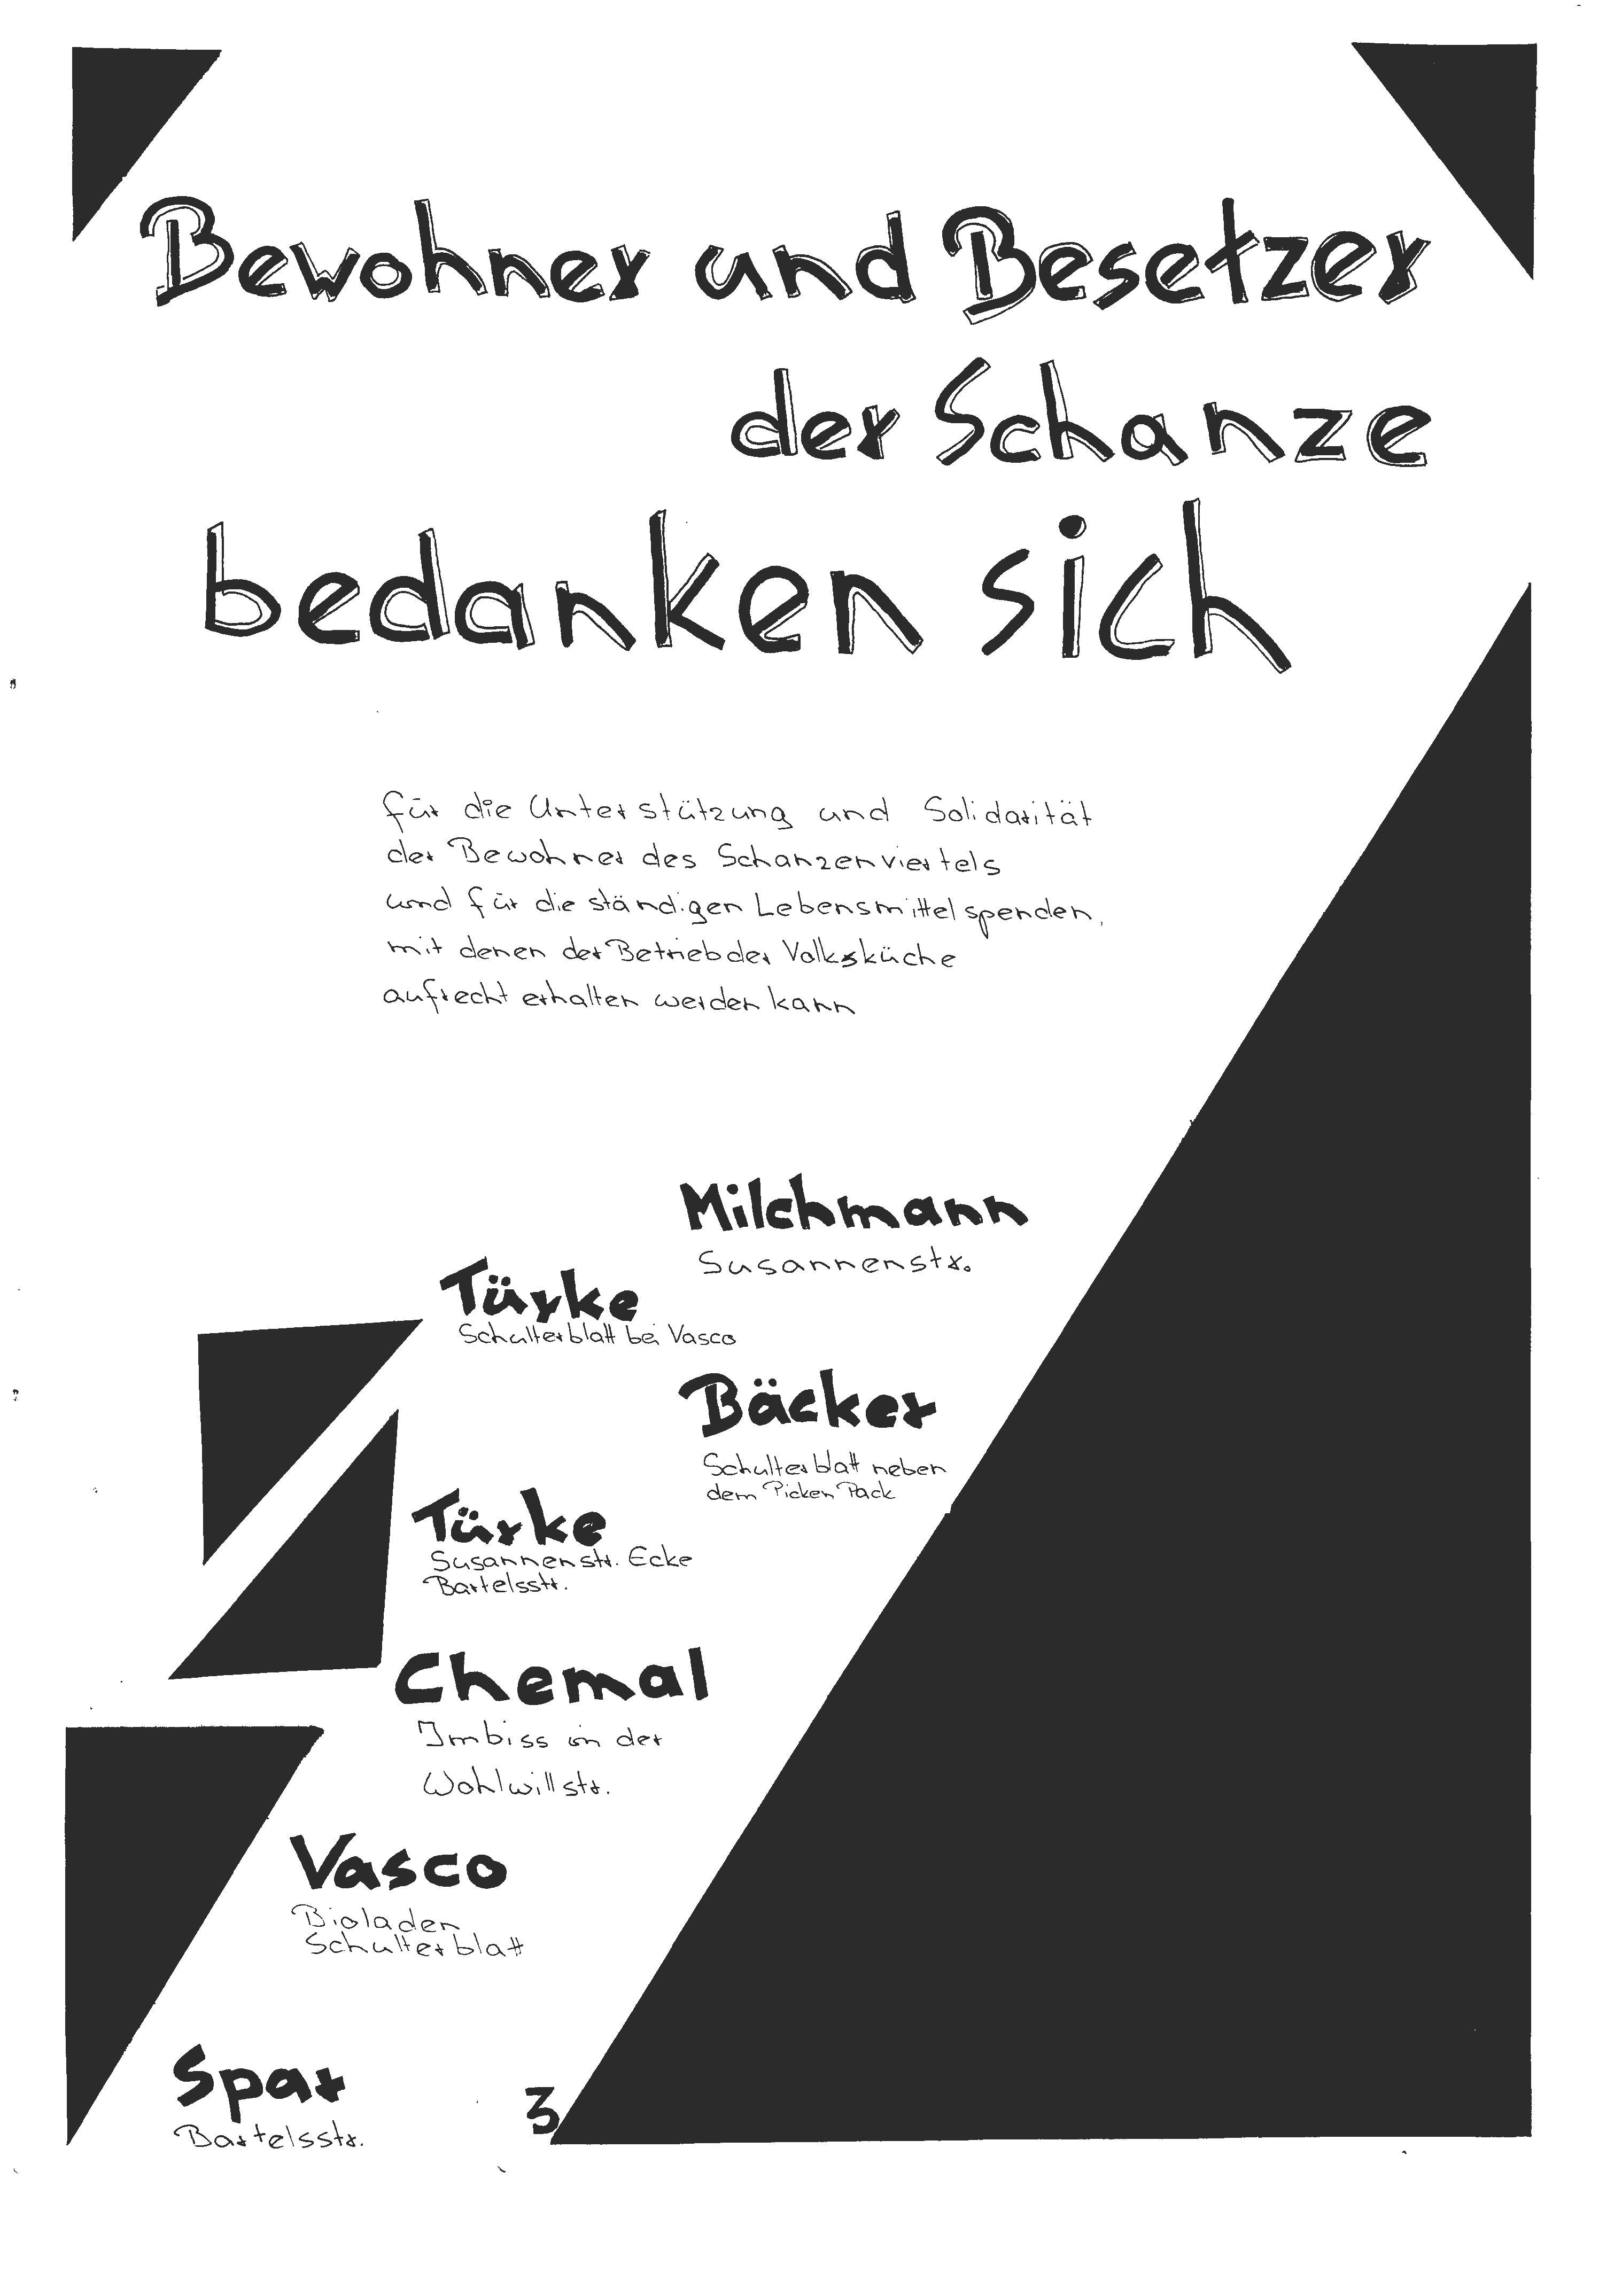 Bewohner und Besetzer
der Schanze
bedanken sich
für die Unterstützung und Solidarität
der Bewohner des Schanzenviertels
und für die ständigen Lebensmittelspenden,
mit denen der Betrieb der Volksküche
aufrecht erhalten werden kann
Milchmann
Susannenstr.
Türke
Schulterblatt bei Vasco
Bäcker
Schulterblatt neben
dem Picken Pack
Türke
Susannenstr. Ecke
Bartelsstr.
Chemal
Imbiss in der
Wohlwillstr.
Vasco
Bioladen
Schulterblatt
Spar
Bartelsstr.
3